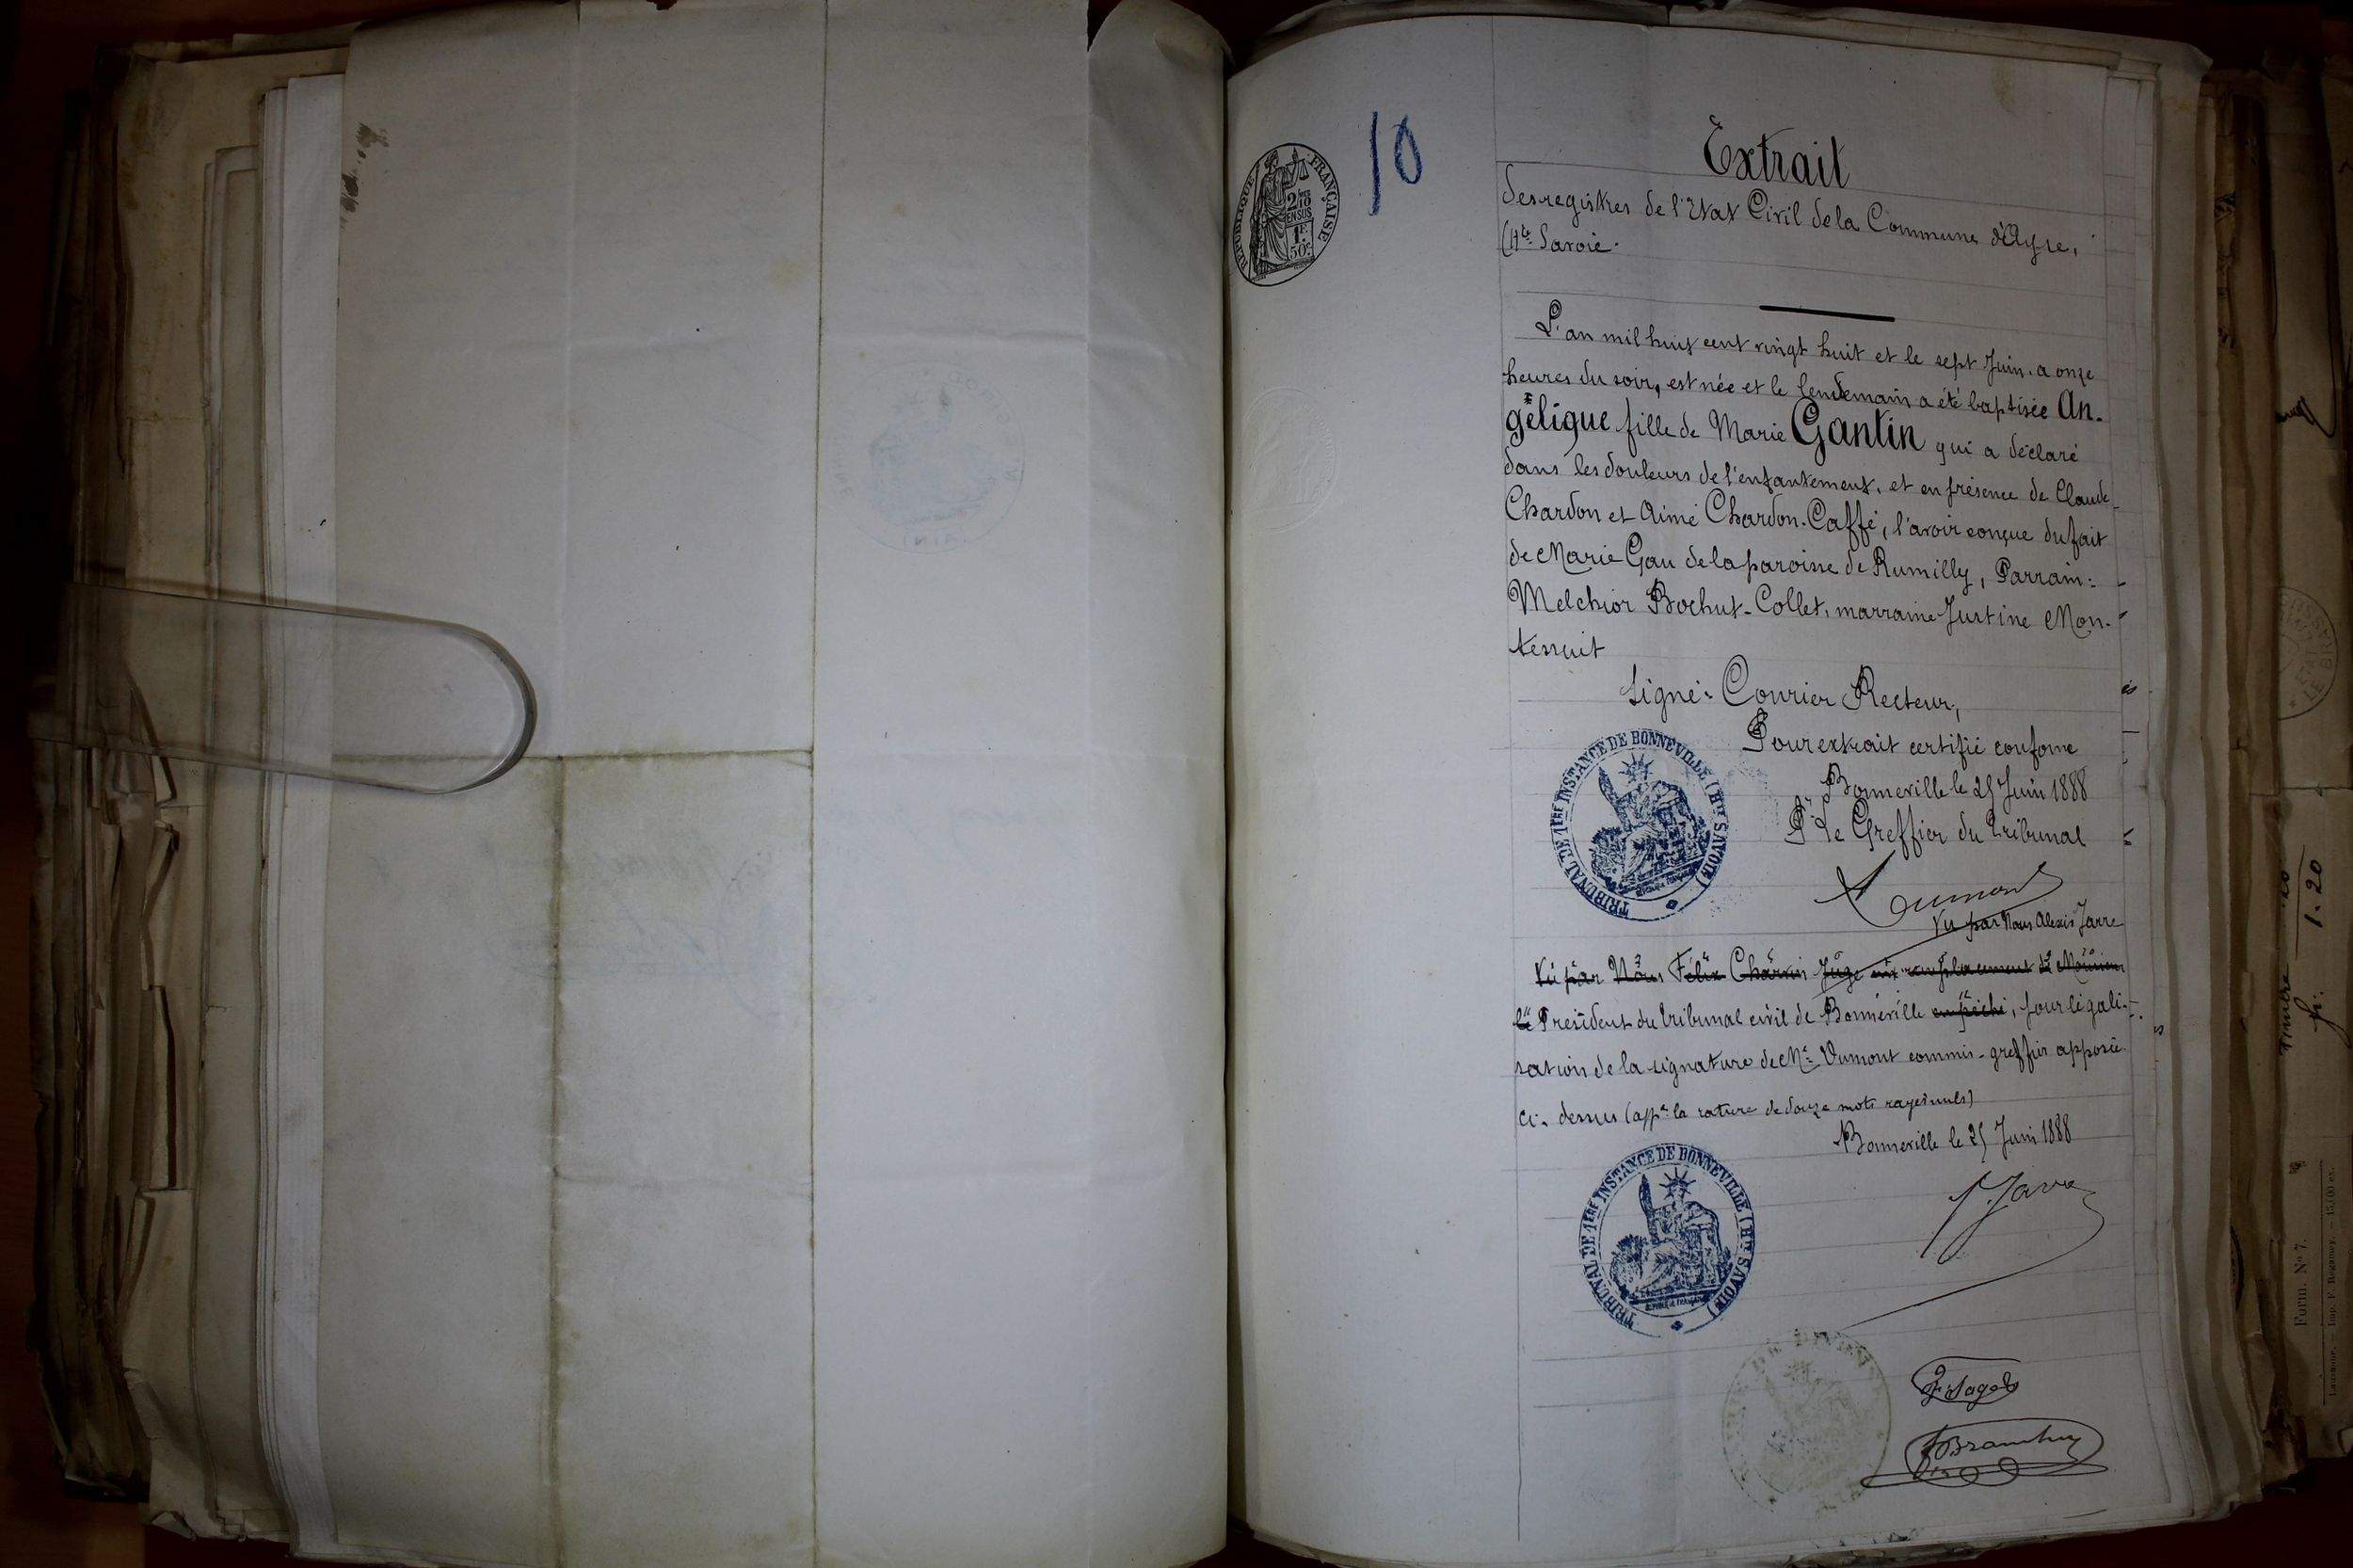 10
RÉPUBLIQUE FRANÇAISE
2/10
EN SUS
1F
50c
Extrait
des registres de l'Etat Civil de la Commune d'Ayse,
(Hte Savoie.
L'an mil huit cent vingt huit et le sept Juin. a onze
heures du soir, est née et le lendemain a été baptisée An-
gélique fille de Marie Gantin qui a déclaré
dans les douleurs de l'enfantement, et en présence de Claude
Chardon et Aimé Chardon-Caffé, l'avoir conçue du fait
de Marie Gau de la paroisse de Rumilly, Parrain:
Melchior Bochut-Collet, marraine Justine Mon-
tessuit
Signé: Courier Recteur,
Pour extrait certifié conforme
Bonneville le 25 Juin 1888
Pr Le Greffier du Tribunal
Dumont
TRIBUNAL DE 1ERE INSTANCE DE BONNEVILLE (HTE SAVOIE)
Vu par Nous Alexis Jarre
Vu par Nous Félix Charvin Juge en remplacement de Monsieur
le Président du Tribunal civil de Bonneville empêché, pour légali-
sation de la signature de Me Dumont commis-greffier apposée
ci-dessus (appr la rature de douze mots rayés nuls)
Bonneville le 25 Juin 1888
TRIBUNAL DE 1ERE INSTANCE DE BONNEVILLE (HTE SAVOIE)
Jarre
1.20
Form. No 7.